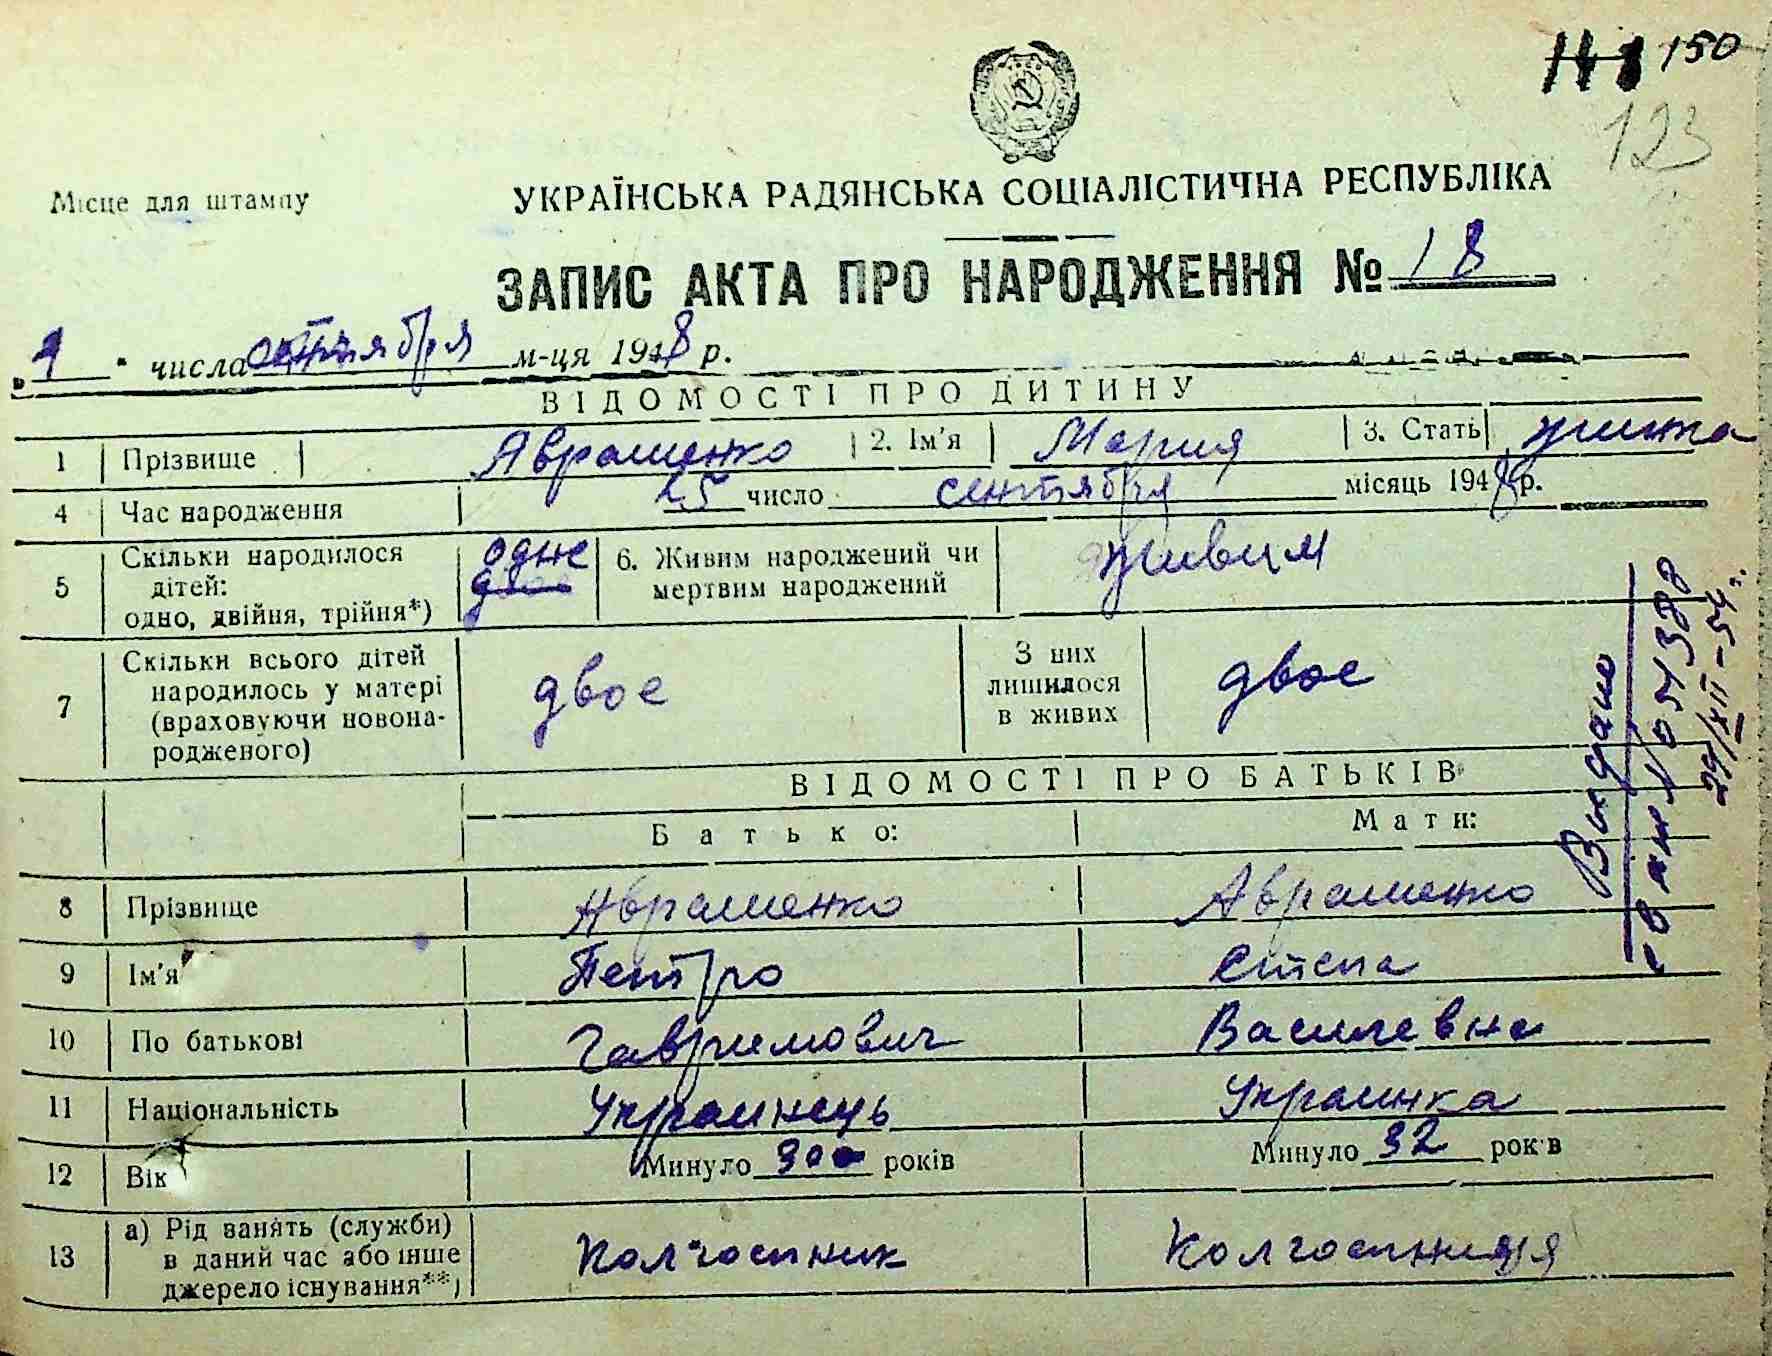 150
123
Місце для штампу
УКРАЇНСЬКА РАДЯНСЬКА СОЦІАЛІСТИЧНА РЕСПУБЛІКА
ЗАПИС АКТА ПРО НАРОДЖЕННЯ № 18
числа октября м-ця 1948 р.
ВІДОМОСТІ ПРО ДИТИНУ
1 Прізвище Аврашенко 2. Ім'я Мария 3. Стать жинка
4 Час народження 25 число сентября місяць 1948 р.
5 Скільки народилося дітей: одно, двійня, трійня*) одне двое 6. Живим народжений чи мертвим народжений живим
7 Скільки всього дітей народилось у матері (враховуючи новонародженого) двое З них лишилося в живих двое
ВІДОМОСТІ ПРО БАТЬКІВ
Батько: Мати:
8 Прізвище Аврашенко Аврашенко
9 Ім'я Петро
10 По батькові Василевна
11 Національність Украинець Украинка
12 Вік Минуло 30 років Минуло 32 рок в
13 а) Рід занять (служби) в даний час або інше джерело існування**) Колгоспник Колгоспниця
Видано